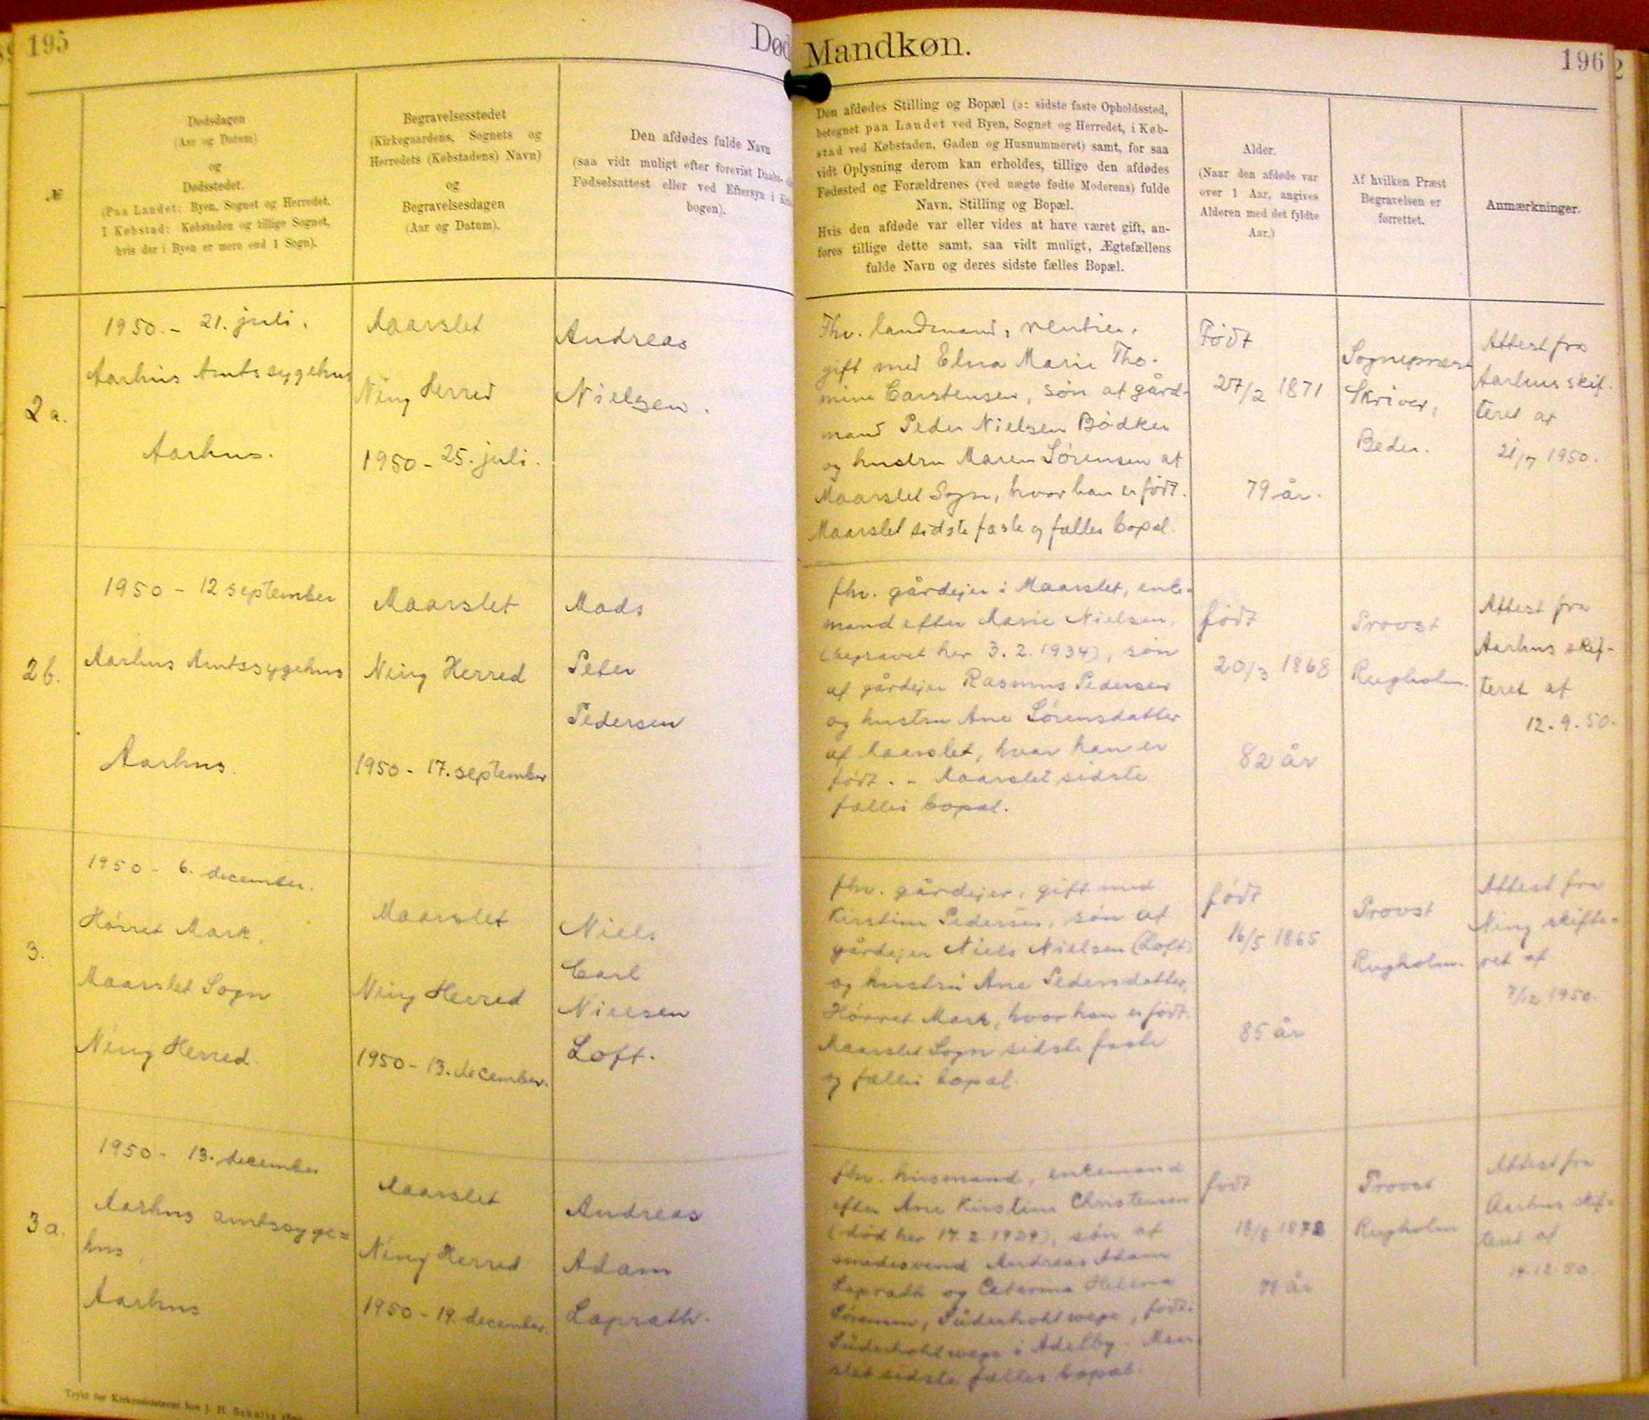 195
Død
Mandkøn.
196
№
Dødsdagen
(Aar og Datum)
og
Dødsstedet.
(Paa Landet: Byen, Sognet og Herredet.
I Købstad: Købstaden og tillige Sognet,
hvis der i Byen er mere end 1 Sogn).
Begravelsesstedet
(Kirkegaardens, Sognets og
Herredets (Købstadens) Navn)
og
Begravelsesdagen
(Aar og Datum).
Den afdødes fulde Navn
(saa vidt muligt efter forevist Daabs-
Fødselsattest eller ved Eftersyn i
bogen).
Den afdødes Stilling og Bopæl (ɔ: sidste faste Opholdssted,
betegnet paa Landet ved Byen, Sognet og Herredet, i Køb-
stad ved Købstaden, Gaden og Husnummeret) samt, for saa
vidt Oplysning derom kan erholdes, tillige den afdødes
Fødested og Forældrenes (ved uægte fødte Moderens) fulde
Navn, Stilling og Bopæl.
Hvis den afdøde var eller vides at have været gift, an-
føres tillige dette samt, saa vidt muligt, Ægtefællens
fulde Navn og deres sidste fælles Bopæl.
Alder.
(Naar den afdøde var
over 1 Aar, angives
Alderen med det fyldte
Aar.)
Af hvilken Præst
Begravelsen er
forrettet.
Anmærkninger.
2a.
1950. - 21. juli.
Aarhus Amtssygehus
Aarhus.
Maarslet
Ning Herred
1950 - 25. juli.
Andreas
Nielsen.
Fhv. landmand, rentier,
gift med Elna Marie Tho-
mine Carstensen, søn af gård-
mand Peder Nielsen Bødker
og hustru Maren Sørensen af
Maarslet Sogn, hvor han er født.
Maarslet sidste faste og fælles bopæl.
Født
27/2 1871
79 år.
Sognepræst
Skriver,
Beder.
Attest fra
Aarhus skif-
teret af
21/7 1950.
2b.
1950 - 12 september
Aarhus Amtssygehus
Aarhus.
Maarslet
Ning Herred
1950 - 17. september
Mads
Peter
Pedersen
fhv. gårdejer i Maarslet, enke-
mand efter Marie Nielsen,
(begravet her 3.2.1934), søn
af gårdejer Rasmus Pedersen
og hustru Ane Sørensdatter
af Maarslet, hvor han er
født. - Maarslet sidste
fælles bopæl.
født
20/3 1868
82 år
Provst
Rugholm.
Attest fra
Aarhus skif-
teret af
12.9.50.
3.
1950 - 6. december.
Hørret Mark,
Maarslet Sogn
Ning Herred.
Maarslet
Ning Herred
1950 - 13. december.
Niels
Carl
Nielsen
Loft.
fhv. gårdejer, gift med
Kirstine Pedersen, søn af
gårdejer Niels Nielsen (Loft)
og hustru Ane Pedersdatter,
Hørret Mark, hvor han er født.
Maarslet Sogn sidste faste
og fælles bopæl.
født
16/5 1865
85 år
Provst
Rugholm.
Attest fra
Ning skifte-
ret af
7/12 1950.
3a.
1950 - 13. december
Aarhus amtssyge=
hus
Aarhus
Maarslet
Ning Herred
1950 - 19. december.
Andreas
Adam
Laprath.
fhv. husmand, enkemand
efter Ane Kirstine Christensen
(død her 17.2.), søn af
smedesvend Andreas Adam
Laprath og Catarina Helena
Sørensen, født i
i Adelby. Maar-
slet sidste fælles bopæl.
født
Provst
Rugholm
Attest fra
Aarhus skif-
teret af
14.12.50.